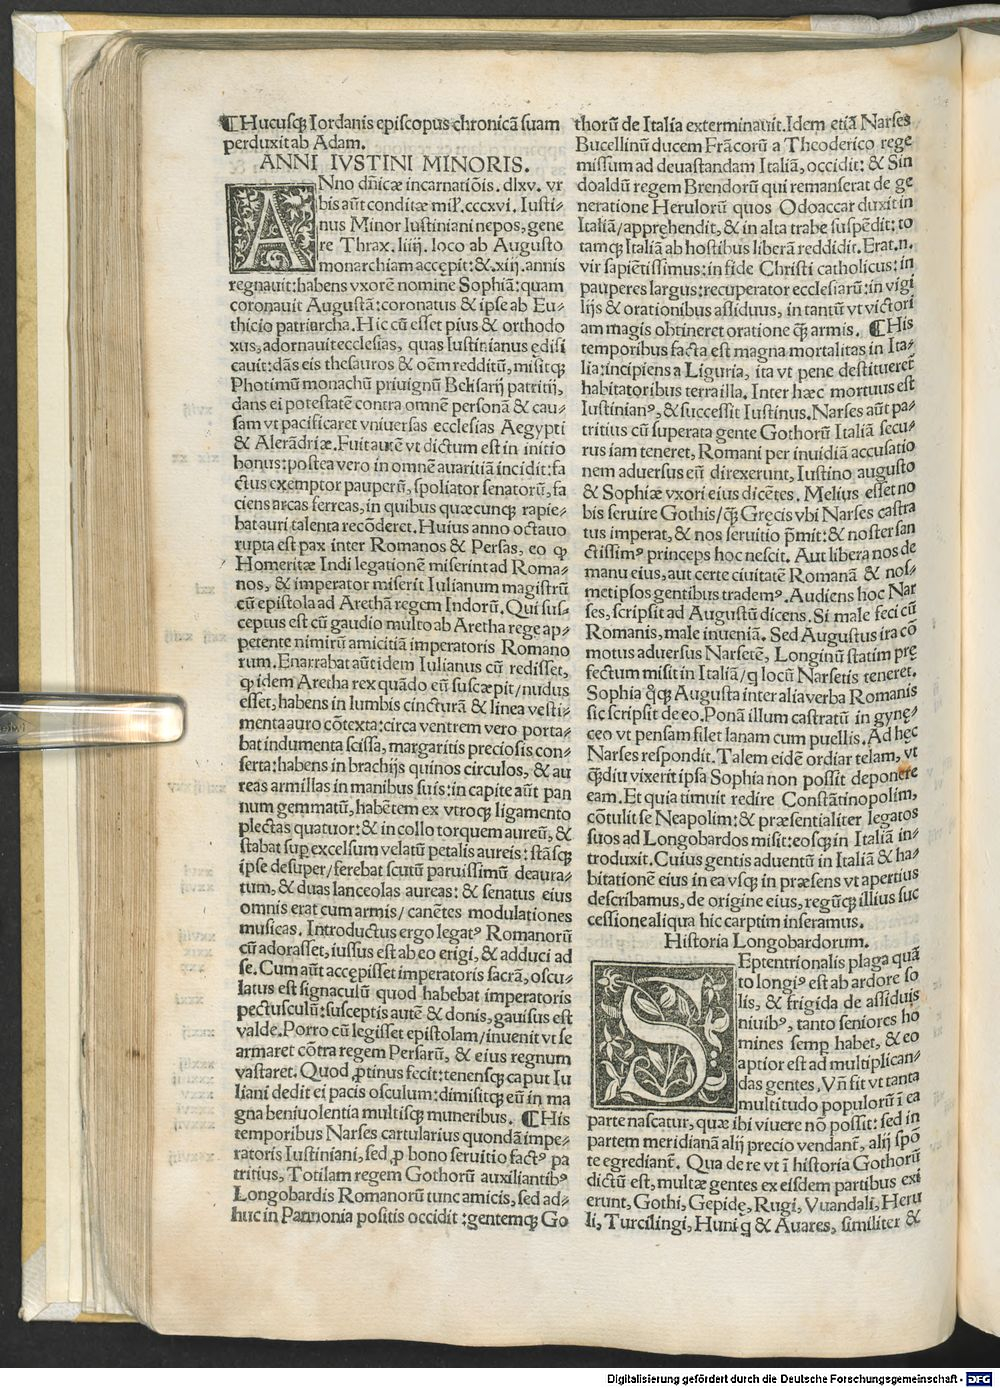 ¶Hucusq; Iordanis episcopus chronicā suam
perduxit ab Adam.
ANNI IVSTINI MINORIS.
ANno dn̄icæ incarnatiōis. dlxv. vr
bis aūt conditæ mil'. cccxvi. Iusti⸗
nus Minor Iustiniani nepos, gene
re Thrax. liiij. loco ab Augusto
monarchiam accępit: &. xij. annis
regnauit: habens vxorē nomine Sophiā: quam
coronauit Augustā: coronatus & ipse ab Eu⸗
thicio patriarcha. Hic cū esset pius & orthodo
xus, adornauit ecclesias, quas Iustinianus ędifi
cauit: dās eis thesauros & oēm redditū, misitq;
Photimū monachū priuignū Belisarij patritij,
dans ei potestatē contra omnē personā & cau⸗
sam vt pacificaret vniuersas ecclesias Aegypti
& Alexādriæ. Fuit autē vt dictum est in initio
bonus: postea vero in omnē auaritiā incidit: fa
ctus exemptor pauperū, spoliator senatorū, fa
ciens arcas ferreas, in quibus quæcunq; rapie⸗
bat auri talenta recōderet. Huius anno octauo
rupta est pax inter Romanos & Persas, eo ꝙ
Homeritæ Indi legationē miserint ad Roma⸗
nos, & imperator miserit Iulianum magistrū
cū epistola ad Arethā regem Indorū. Qui sus⸗
ceptus est cū gaudio multo ab Aretha rege ap⸗
petente nimirū amicitiā imperatoris Romano
rum. Enarrabat aūt idem Iulianus cū redisset,
ꝙ idem Aretha rex quādo eū suscæpit/nudus
esset, habens in lumbis cincturā & linea vesti⸗
menta auro cōtexta: circa ventrem vero porta⸗
bat indumenta scissa, margaritis preciosis con⸗
serta: habens in brachijs quinos circulos, & au
reas armillas in manibus suis: in capite aūt pan
num gemmatū, habētem ex vtroq; ligamento
plectas quatuor: & in collo torquem aureū, &
stabat suꝑ excelsum velatū petalis aureis: stāsq;
ipse desuper/ferebat scutū paruissimū deaura⸗
tum, & duas lanceolas aureas: & senatus eius
omnis erat cum armis/canētes modulationes
musicas. Introductus ergo legatꝰ Romanorū
cū adorasset, iussus est ab eo erigi, & adduci ad
se. Cum aūt accępisset imperatoris sacrā, oscu⸗
latus est signaculū quod habebat imperatoris
pectusculū: susceptis autē & donis, gauisus est
valde. Porro cū legisset epistolam/inuenit vt se
armaret cōtra regem Persarū, & eius regnum
vastaret. Quod ꝓtinus fecit: tenensq; caput Iu
liani dedit ei pacis osculum: dimisitq; eū in ma
gna beniuolentia multisq; muneribus. ¶His
temporibus Narses cartularius quondā impe⸗
ratoris Iustiniani, sed ꝓ bono seruitio factꝰ pa
tritius, Totilam regem Gothorū auxiliantibꝰ
Longobardis Romanorū tunc amicis, sed ad⸗
huc in Pannonia positis occidit: gentemq; Go
thorū de Italia exterminauit. Idem etiā Narses
Bucellinū ducem Frācorū a Theoderico rege
missum ad deuastandam Italiā, occidit: & Sin
doaldū regem Brendorū qui remanserat de ge
neratione Herulorū quos Odoaccar duxit in
Italiā/apprehendit, & in alta trabe suspēdit: to
tamq; Italiā ab hostibus liberā reddidit. Erat.n.
vir sapiētissimus: in fide Christi catholicus: in
pauperes largus: recuperator ecclesiarū: in vigi
lijs & orationibus assiduus, in tantū vt victori
am magis obtineret oratione q̄ʒ armis. ¶His
temporibus facta est magna mortalitas in Ita⸗
lia: incipiens a Liguria, ita vt pene destitueret̄
habitatoribus terra illa. Inter hæc mortuus est
Iustinianꝰ, & successit Iustinus. Narses aūt pa⸗
tritius cū superata gente Gothorū Italiā secu⸗
rus iam teneret, Romani per inuidiā accusatio
nem aduersus eū direxerunt, Iustino augusto
& Sophiæ vxori eius dicētes. Melius esset no
bis seruire Gothis/q̄ʒ Gręcis vbi Narses castra
tus imperat, & nos seruitio p̄mit: & noster san
ctissimꝰ princeps hoc nescit. Aut libera nos de
manu eius, aut certe ciuitatē Romanā & nos⸗
metipsos gentibus trademꝰ. Audiens hoc Nar
ses, scripsit ad Augustū dicens. Si male feci cū
Romanis, male inueniā. Sed Augustus ira cō
motus aduersus Narsetē, Longinū statim prę
fectum misit in Italiā/q locū Narsetis teneret.
Sophia q̊q; Augusta inter alia verba Romanis
sic scripsit de eo. Ponā illum castratū in gynę⸗
ceo vt pensam filet lanam cum puellis. Ad hęc
Narses respondit. Talem eidē ordiar telam, vt
q̄ʒdiu vixerit ipsa Sophia non possit deponere
eam. Et quia timuit redire Constātinopolim,
cōtulit se Neapolim: & præsentialiter legatos
suos ad Longobardos misit: eosq; in Italiā in⸗
troduxit. Cuius gentis aduentū in Italiā & ha⸗
bitationē eius in ea vsq; in præsens vt apertius
describamus, de origine eius, regūq; illius suc
cessione aliqua hic carptim inseramus.
Historia Longobardorum.
SEptentrionalis plaga quā
to longiꝰ est ab ardore so
lis, & frigida de assiduis
niuibꝰ, tanto seniores ho
mines semꝑ habet, & eo
aptior est ad multiplican⸗
das gentes. Vn̄ fit vt tanta
multitudo populorū ī ea
parte nascatur, quæ ibi viuere nō possit: sed in
partem meridianā alij precio vendant̄, alij spō
te egrediant̄. Qua de re vt ī historia Gothorū
dictū est, multæ gentes ex eisdem partibus exi
erunt, Gothi, Gepidę, Rugi, Vuandali, Heru
li, Turcilingi, Huni q & Auares, similiter &
Digitalisierung gefördert durch die Deutsche Forschungsgemeinschaft - DFG